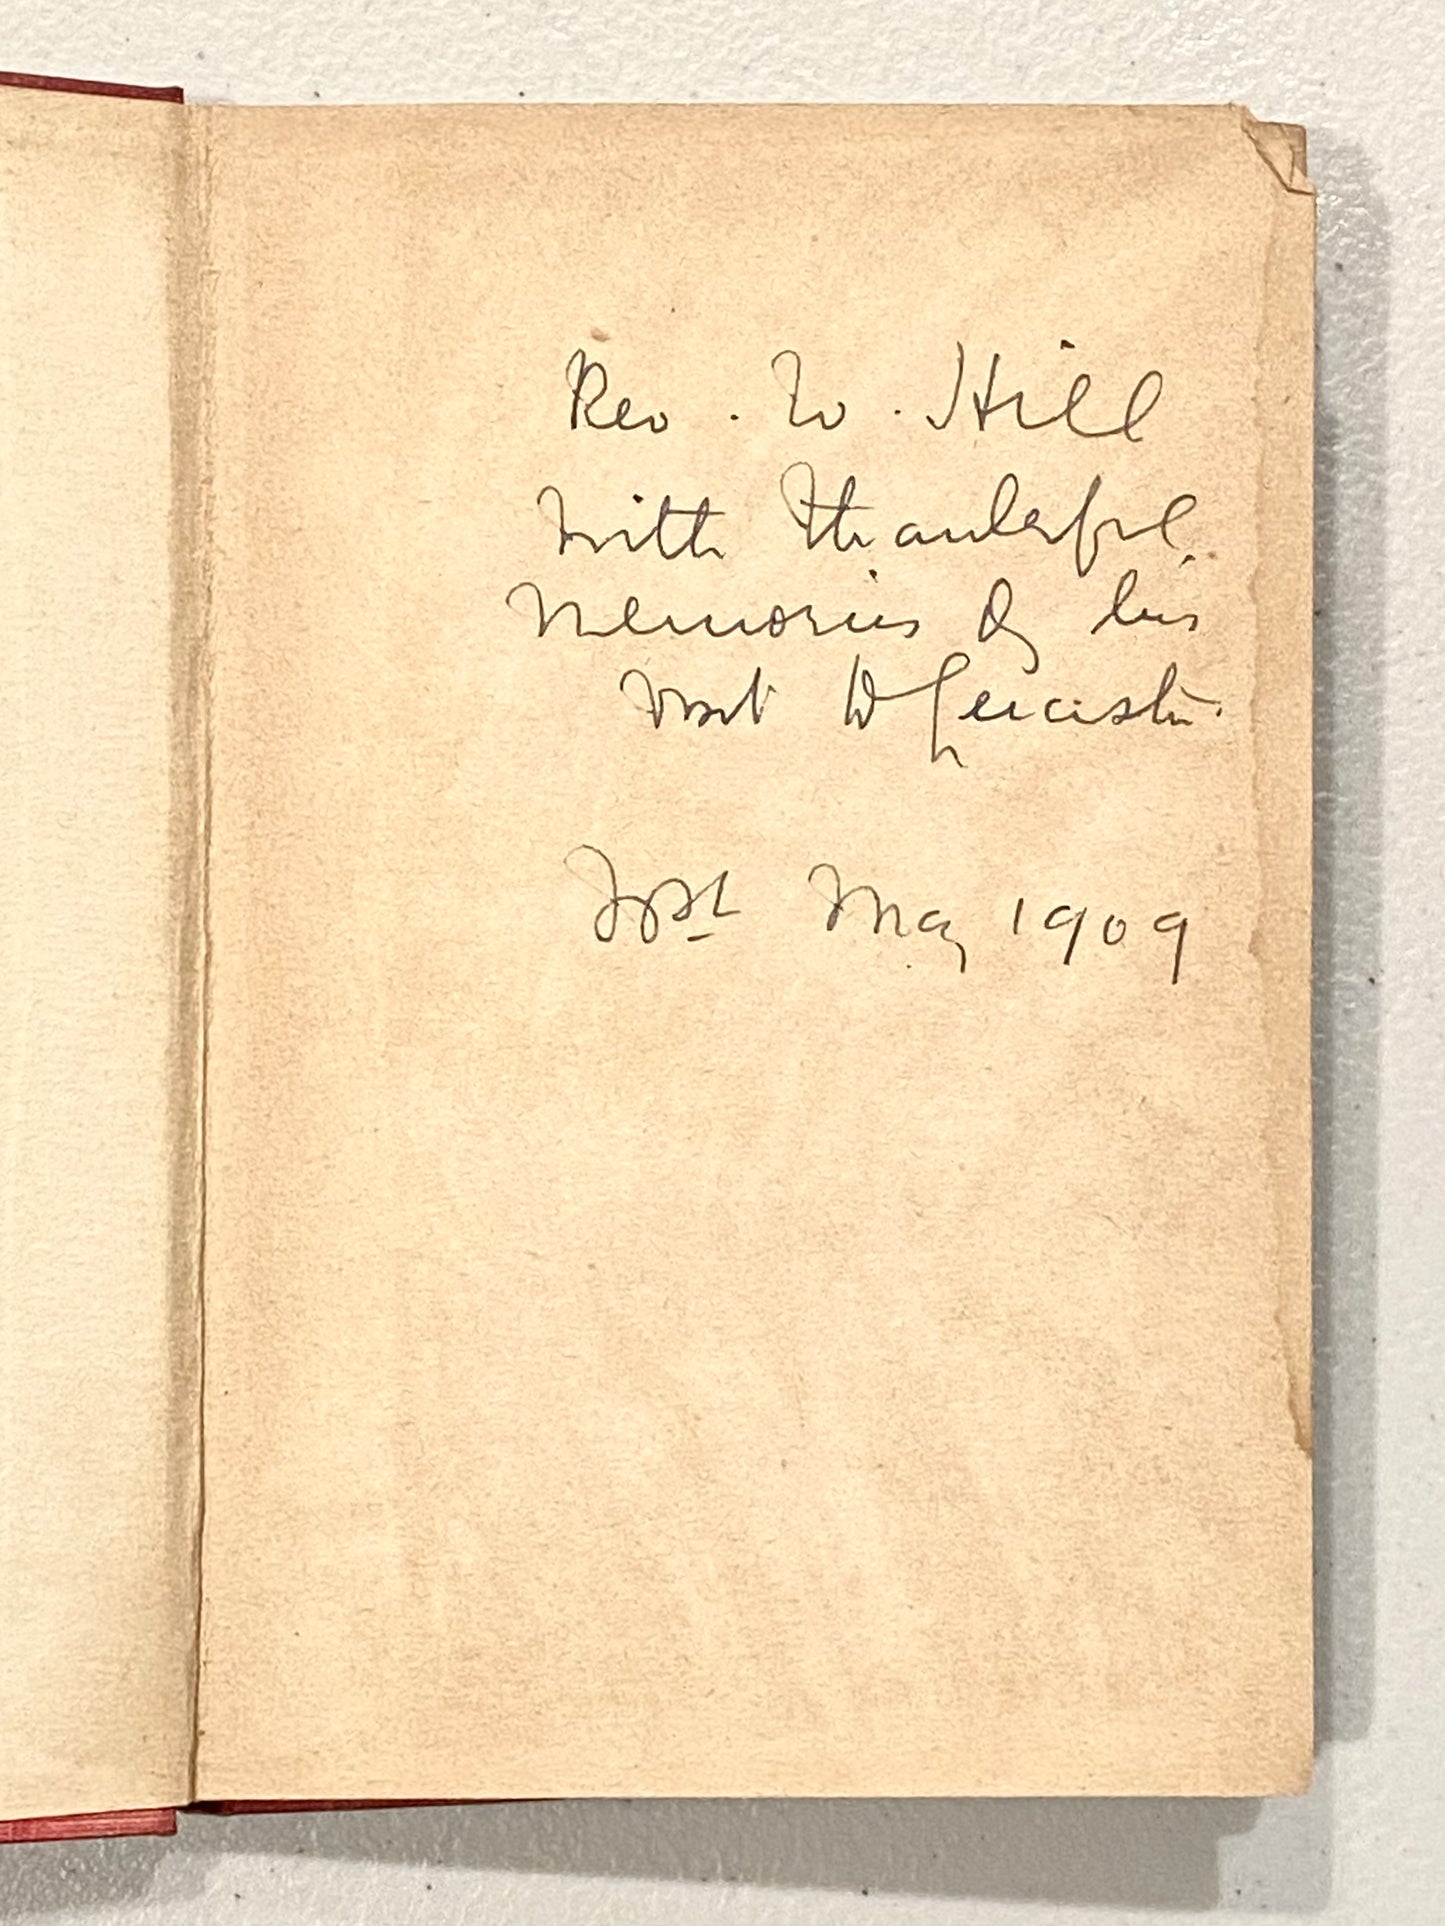 Rev. W. Hill
with thankful
memories of his
visit to Leicester.
May 1909